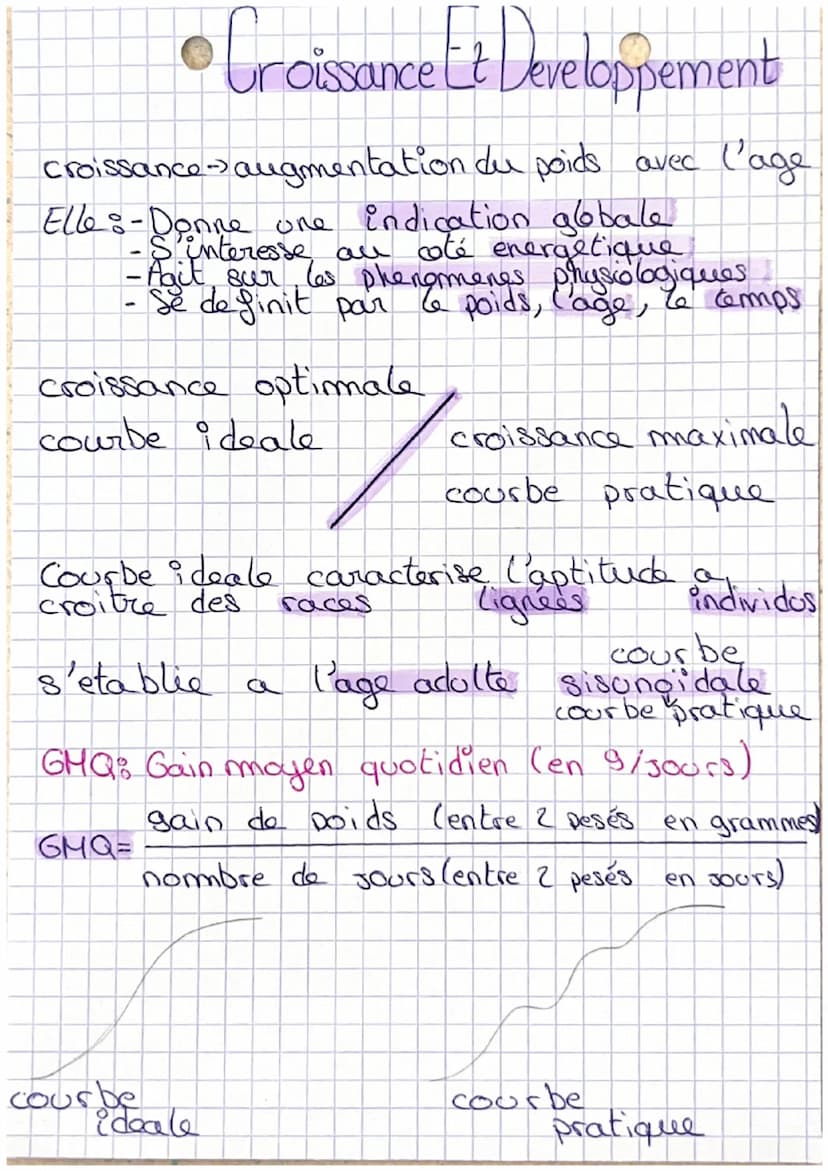 • Croissance Et Developpement
croissance → augmentation du poids avec l'age
Elle : - Donne une indication globale
- S'interesse au coté energetique
- Agit sur les phenomenes physiologiques
- Se definit par le poids, l'age, le temps
croissance optimale
courbe ideale
croissance maximale
courbe pratique
Courbe ideale caracterise l'aptitude a
croitre des races lignées individus
s'etablie a l'age adulte
courbe
sisongidale
courbe pratique
GMQ: Gain moyen quotidien (en g/jours)
GMQ=
gain de poids (entre 2 pesés en grammes)
nombre de jours (entre 2 pesés en jours)
courbe
ideale
courbe
pratique